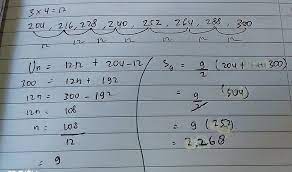 3 x 4 = 12
204, 216, 228, 240, 252, 264, 288, 300
12 12 12 12 12 12 12
Un = 12n + 204 - 12
300 = 12n + 192
12n = 300 - 192
12n = 108
n = 108
12
= 9
S9 = 9/2 (204 + 300)
= 9/2 (504)
= 9 (252)
= 2.268